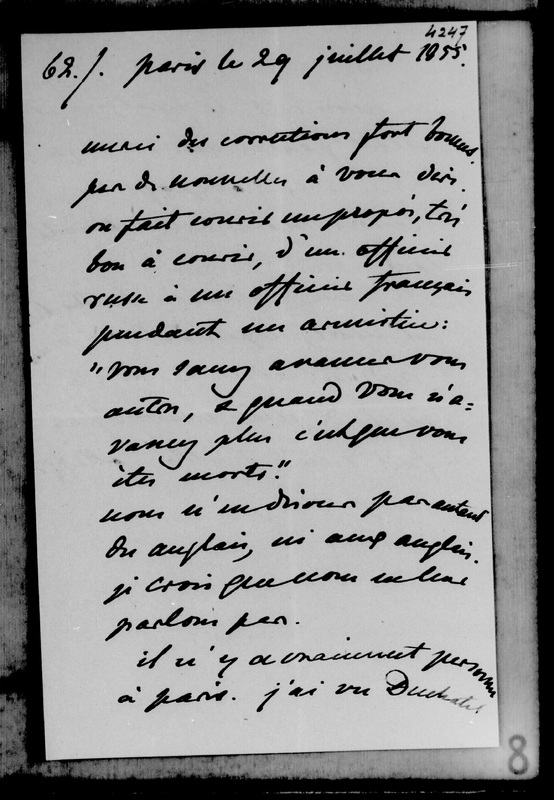 4247
62./. paris le 29 juillet 1855.
merci des corrections fort bonnes.
pas de nouvelles à vous dire.
on fait courir un propos, très
bon à courir, d'un officier
russe à un officier français
pendant un armistice :
"vous savez avancer vous
autres, & quand vous n'a=
vancez plus c'est que vous
êtes morts."
nous n'en disons pas autant
des anglais, ni aux anglais.
je crois que nous ne leur
parlons pas.
il n'y a vraiment personne
à paris. j'ai vu Duchatel
8